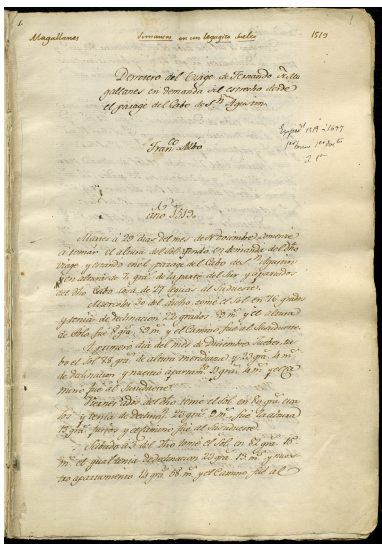 1.
Magallanes
Simancas en un legajito suelto
1519
1
Derrotero del Viage de Fernando de Ma
gallanes en demanda del estrecho desde
el parage del Cabo de Sn. Agustin.
Franco. Albo
año 1519.
Martes á 29 dias del mes de Noviembre comence
á tomar el altura del Sol yendo en demanda del dho
viage, y estando en el parage del Cabo de Sn. Agustin
y en altura de 7 gras. de la parte del Sur, y apartados
del dho Cabo cosa de 27 leguas al Sudueste.
Miercoles 30 del dicho tomé el Sol en 76 grados
y tenia de declinacion 22 grados 59 ms. y el altura
del Polo fué 8 gras. 59 ms. y el Camino fué al Sursudueste.
El primero dia del mes de Diciembre Jueves tu-
bo el Sol 78 gras. de altura meridiana y 23 gras. 4 ms.
de declinacion y nuestro apartamto. 11 gras. 4 ms. y el ca
mino fué al Sursudueste.
Viernes 2 dias del dho tomé el Sol en 80 grados cum
dos y tenia de declinn. 23 gras. 9 ms. fué la altura
13 gras. justos y el camino fué al Sursudueste.
Sabado á 3 del dho tomé el Sol en 82 gras. 15
ms. el qual tenia de declinacion 23 gras. 13 ms. y nues-
tro apartamiento 14 gras. 58 ms. y el Camino fué al